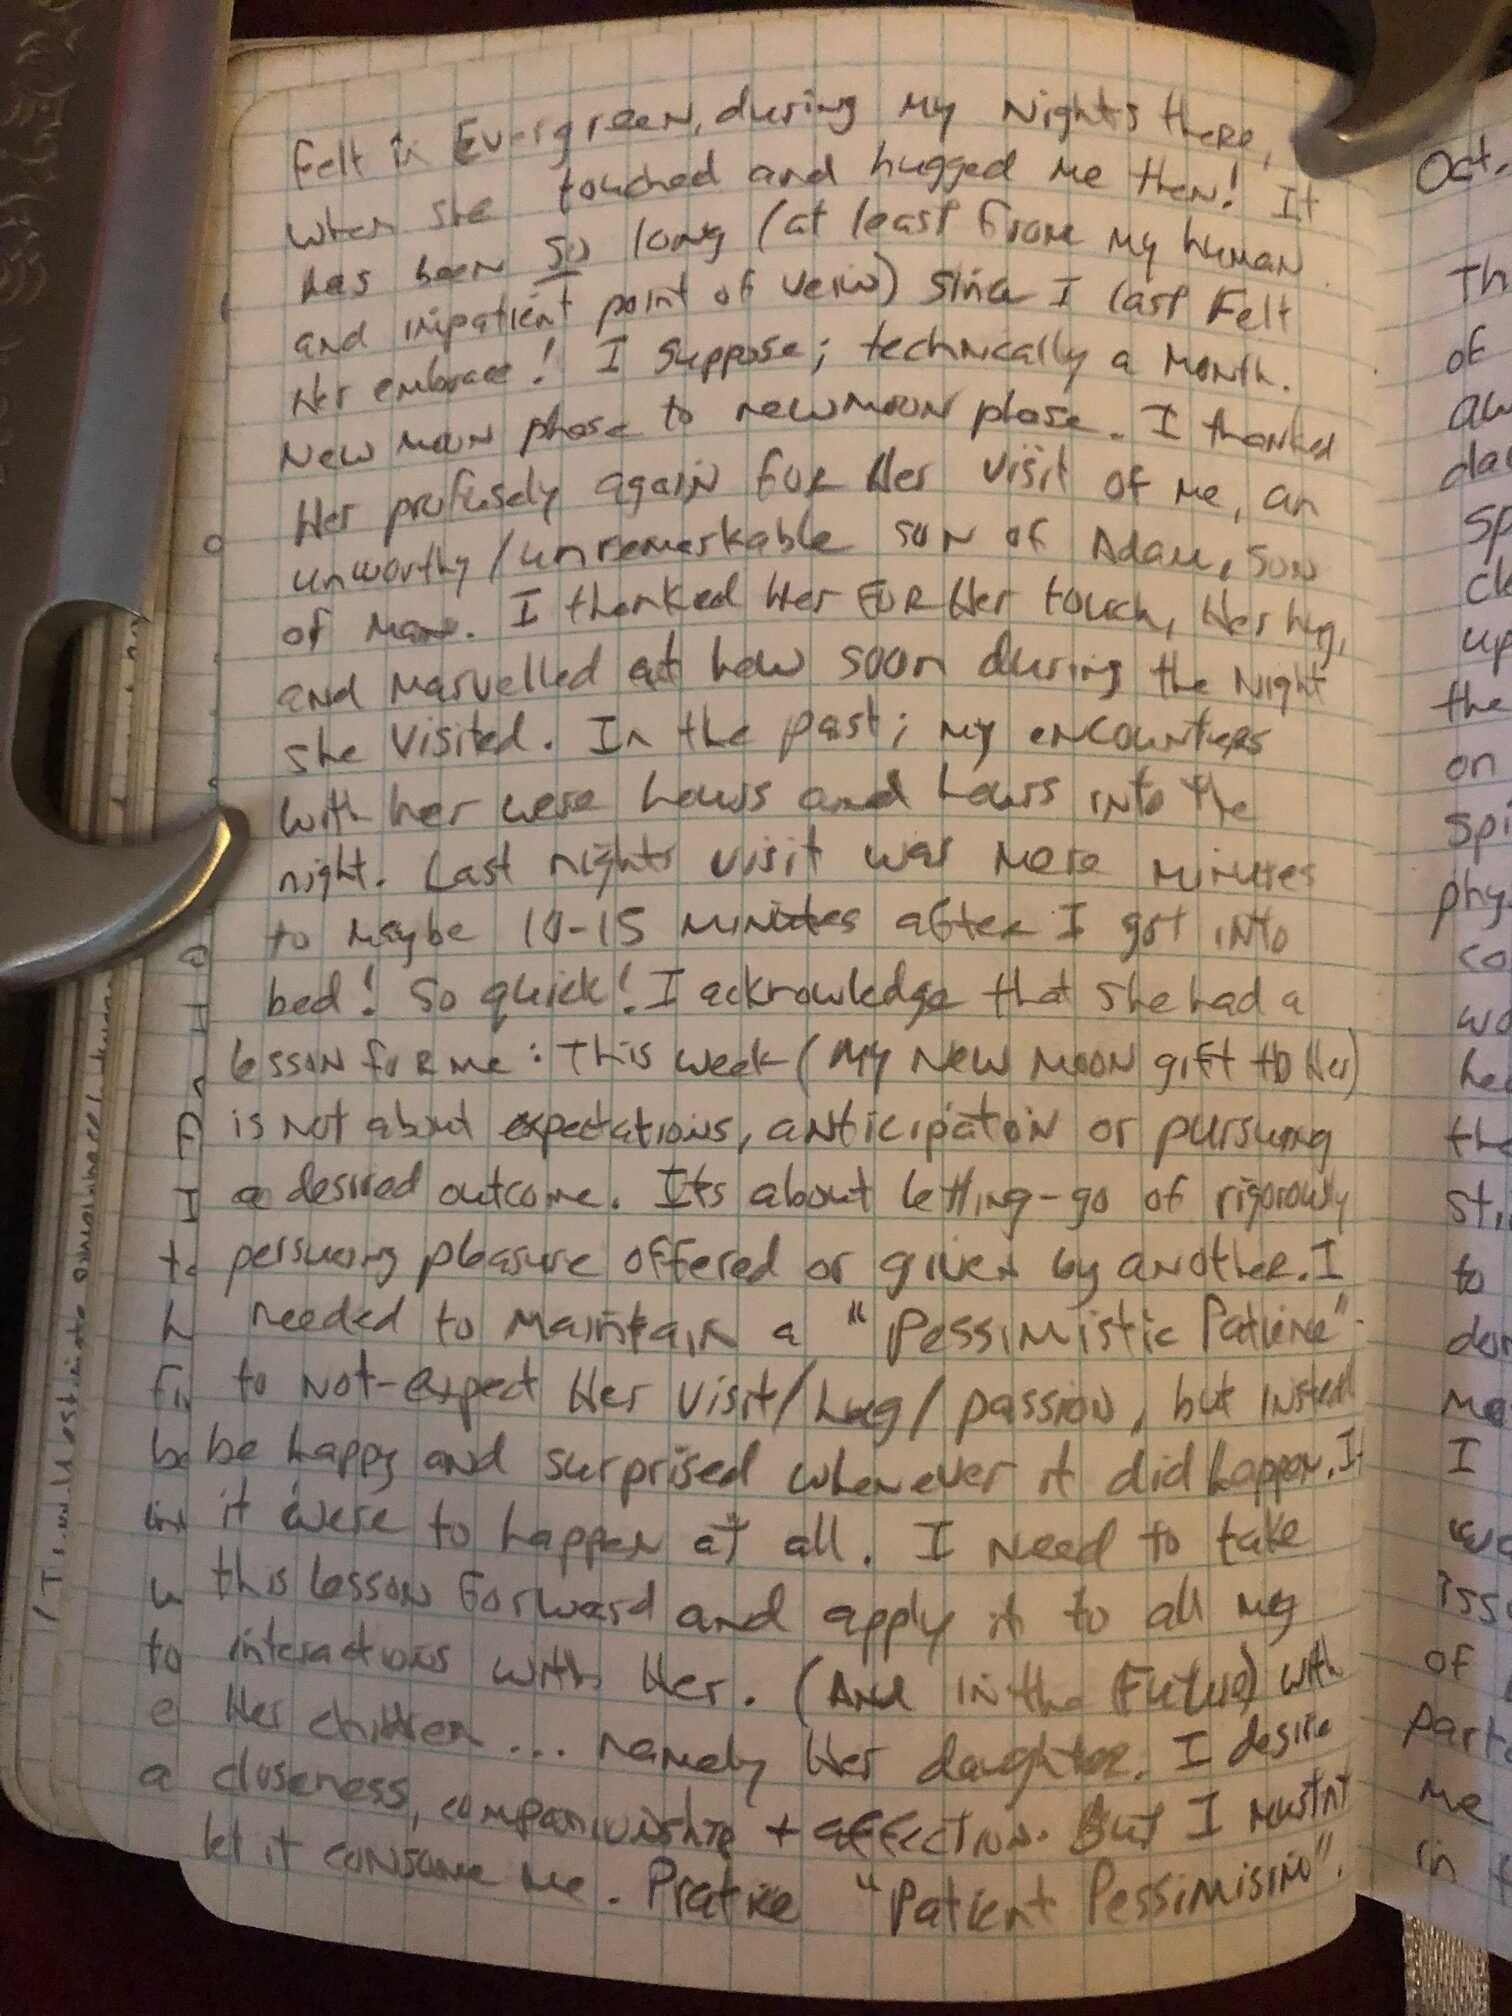 felt in Evergreen, during my Nights there,
when she touched and hugged me then! It
has been so long (at least from my human
and impatient point of veiw) since I last Felt
Her embrace! I suppose; technically a Month.
New moon phase to newmoon phase. I thanked
Her profusely again for Her visit of me, an
unworthy/unremarkable son of Adam, son
of Man. I thanked Her FOR Her touch, Her hug,
and marvelled at how soon during the Night
she visited. In the past; my encounters
with her were hours and hours into the
night. Last nights visit was mere minutes
to maybe 10-15 minutes after I got into
bed! So quick! I acknowledge that she had a
lesson for me: This week (my New Moon gift to Her)
is not about expectations, anticipation or pursuing
a desired outcome. Its about letting-go of rigorously
persuing pleasure offered or given by another. I
needed to maintain a "Pessimistic Patience"
to not-expect Her visit/hug/passion, but instead
be happy and surprised whenever it did happen. If
it were to happen at all. I need to take
this lesson forward and apply it to all my
interactions with Her. (And in the Future) with
Her children... namely Her daughter. I desire
closeness, companionship + affection. But I mustnt
let it consume me. Pratice "Patient Pessimisim".
Oct.
Th
of
aw
da
sp
cl
up
the
on
spi
phy
co
wo
he
the
sti
to
don
me
I
wa
iss
of
part
me
in